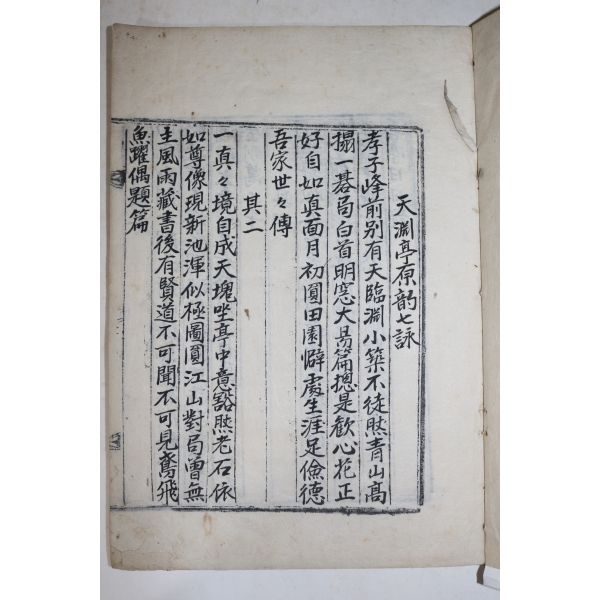 天淵亭原韵七詠
孝子峰前別有天臨淵小築不徒然青山高
撮一碁局白首明窓大昜篇摠是歡心花正
好自如真面月初圓田園僻處生涯足儉德
吾家世々傳
其二
一真々境自成天塊坐亭中意豁然老石依
如尊像現新池渾似極圖圓江山對局曾無
主風雨藏書後有賢道不可聞不可見鳶飛
魚躍偶題篇